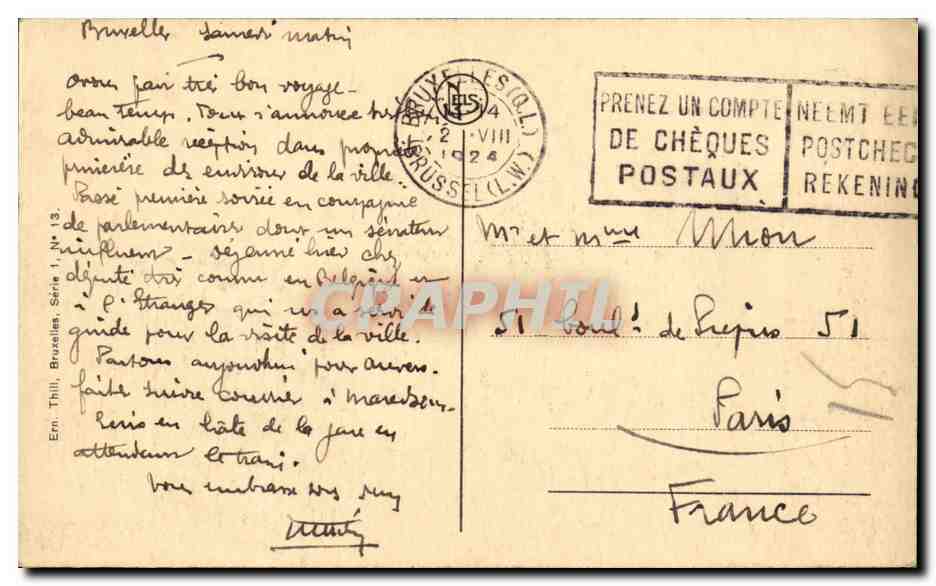 Bruxelles Samedi matin
avons fait très bon voyage -
beau temps. Tout s'annonce très
admirable réception dans propriété
princière des environs de la ville..
Passé première soirée en compagnie
de parlementaires dont un sénateur
influent - déjeuné hier chez
député très connu en Belgique et
à l'Etranger qui ns a servi de
guide pour la visite de la ville.
Partons aujourd'hui pour Anvers.
faites suivre courrier à
Ecris en hâte de la gare en
attendant le train.
Vous embrasse tous deux
Ern. Thill, Bruxelles, Série 1, No 13.
NELS
BRUXELLES (Q.L.)
2 VIII
1924
BRUSSEL (L.W.)
PRENEZ UN COMPTE
DE CHÈQUES
POSTAUX
NEEMT EE
POSTCHEC
REKENING
Mr et Mme
51 boul. de Picpus 51
Paris
France
15
CRAPHIL